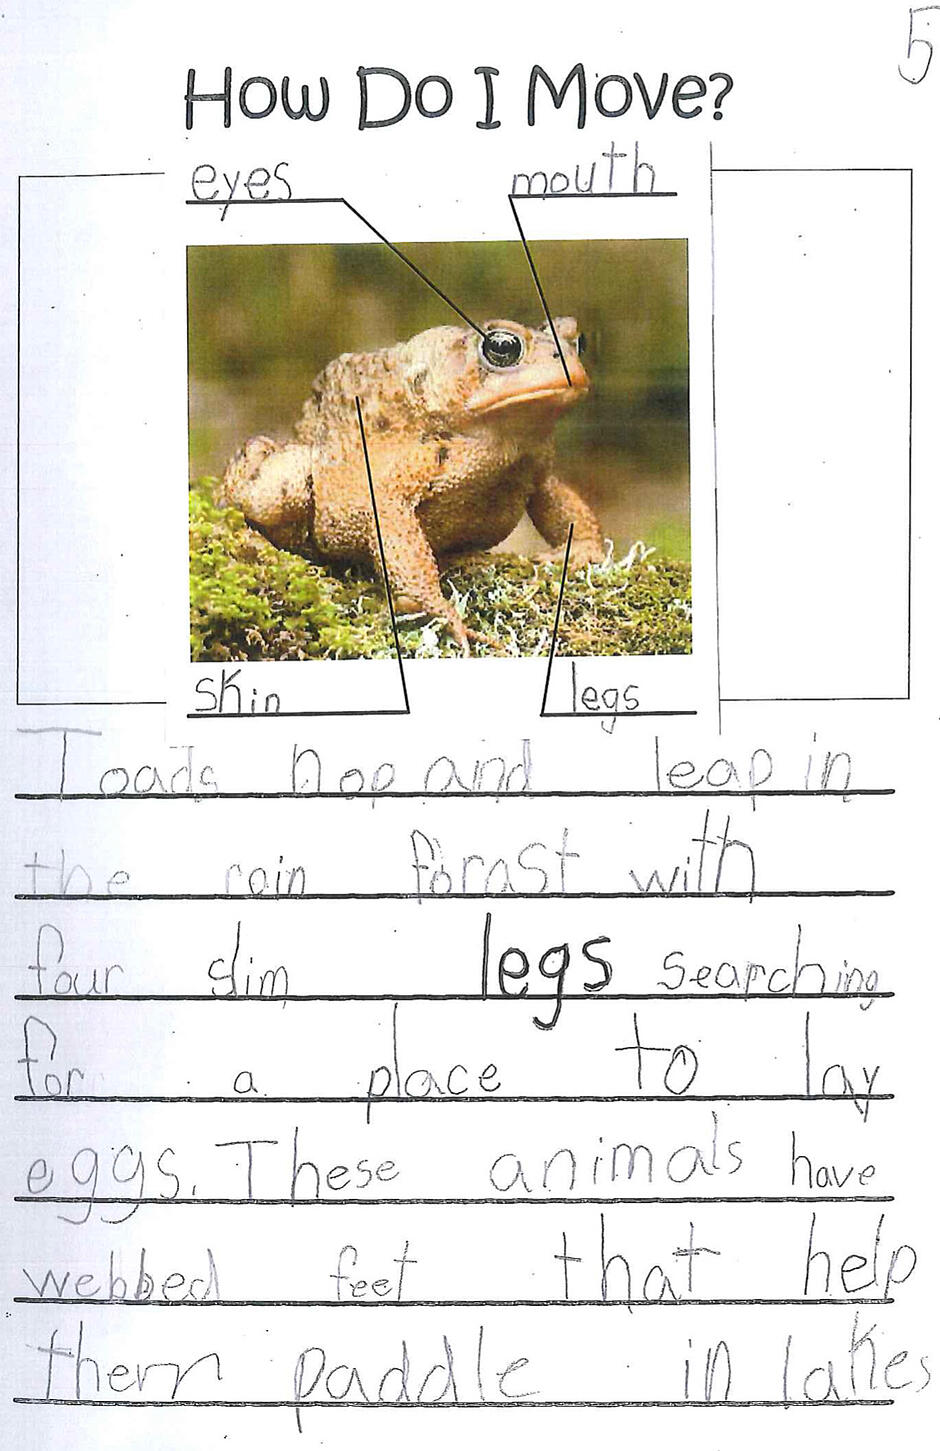 5
How Do I Move?
eyes mouth
skin legs
Toads hop and leap in
the rain forast with
four slim legs searching
for a place to lay
eggs. These animals have
webbed feet that help
them paddle in lakes